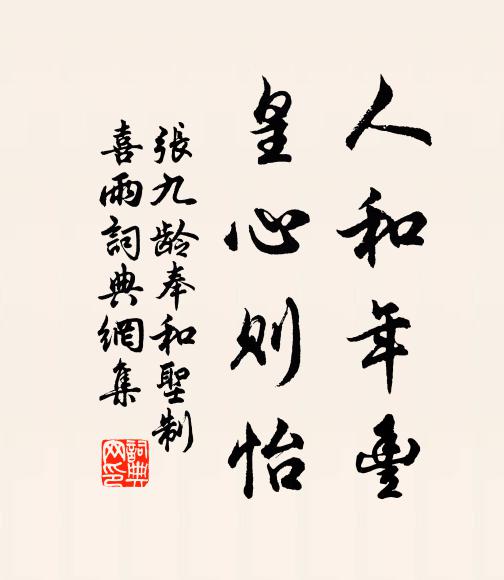 人和年豐
皇心則怡
張九龄奉和聖制
喜雨詞典網集
詞典网印